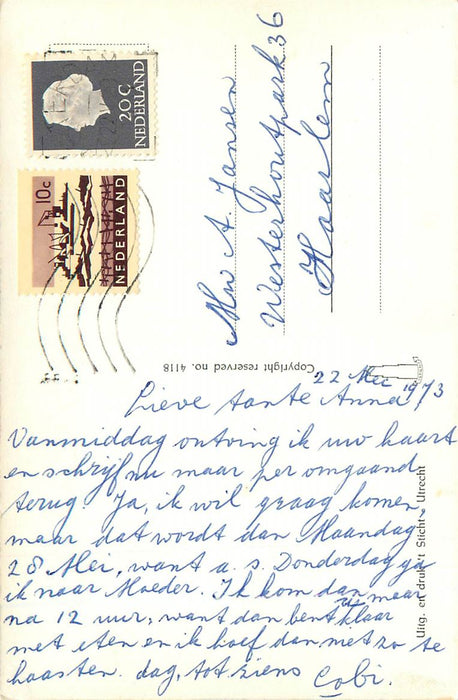 20C
NEDERLAND
10c
NEDERLAND
Mw A. Jansen
Westerhoutpark 36
Haarlem
Copyright reserved no. 4118
Uitg. en druk 't Sticht, Utrecht
22 Mei 1973
Lieve tante Anna,
Vanmiddag ontving ik uw kaart
en schrijf nu maar per omgaand
terug. Ja, ik wil graag komen,
maar dat wordt dan Maandag
28 Mei, want a.s. Donderdag ga
ik naar Moeder. Ik kom dan maar
na 12 uur, want dan bent u klaar
met eten en ik hoef dan met zo te
haasten. dag, tot ziens Cobi.